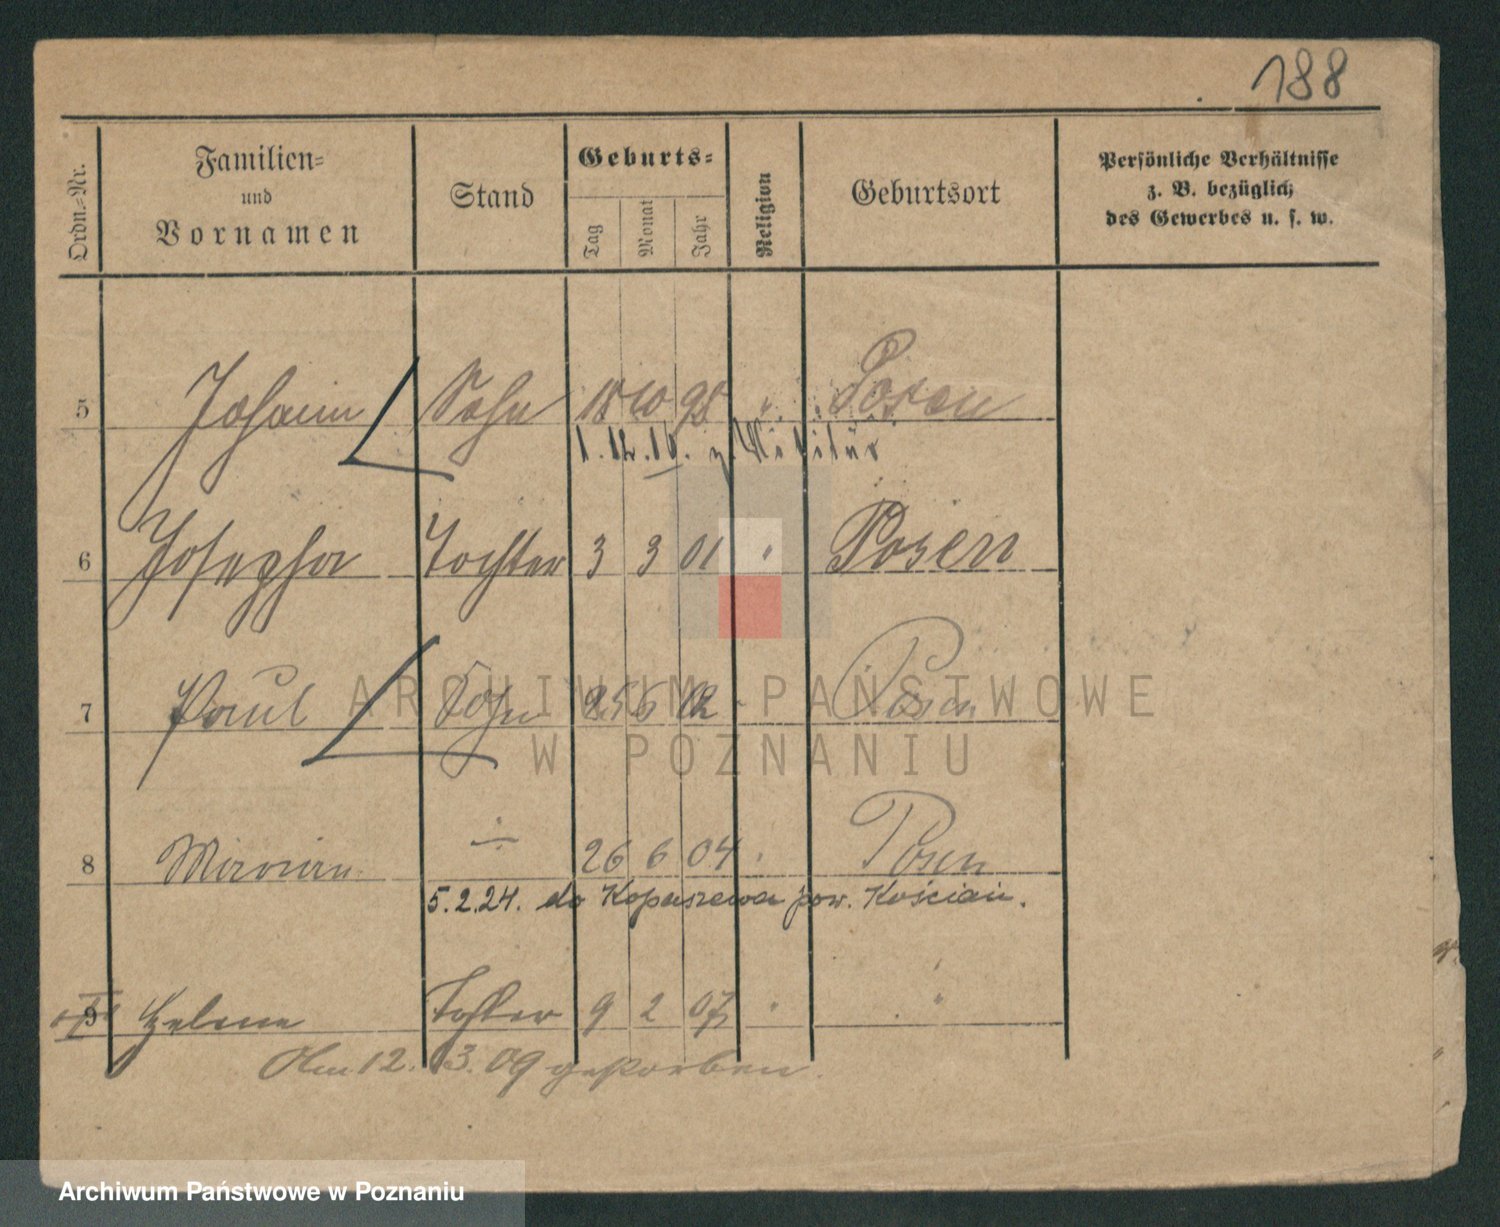 188
Ordn.-Nr. Familien- und Vornamen Stand Geburts- Tag Monat Jahr Religion Geburtsort Persönliche Verhältnisse z. B. bezüglich des Gewerbes u. s. w.
5 Johann Sohn 18 10 98 " Posen
1.12.10. z. Militär
6 Josepha Tochter 3 3 01 " Posen
7 Paul Sohn 25 6 02 " Posen
ARCHIWUM PAŃSTWOWE
W POZNANIU
8 Miroslaus 26 6 04 " Posen
5.2.24. do Kopaszewa pow. Kościan.
9 Helene Tochter 9 2 07 " "
Am 12. 3. 09 gestorben.
Archiwum Państwowe w Poznaniu